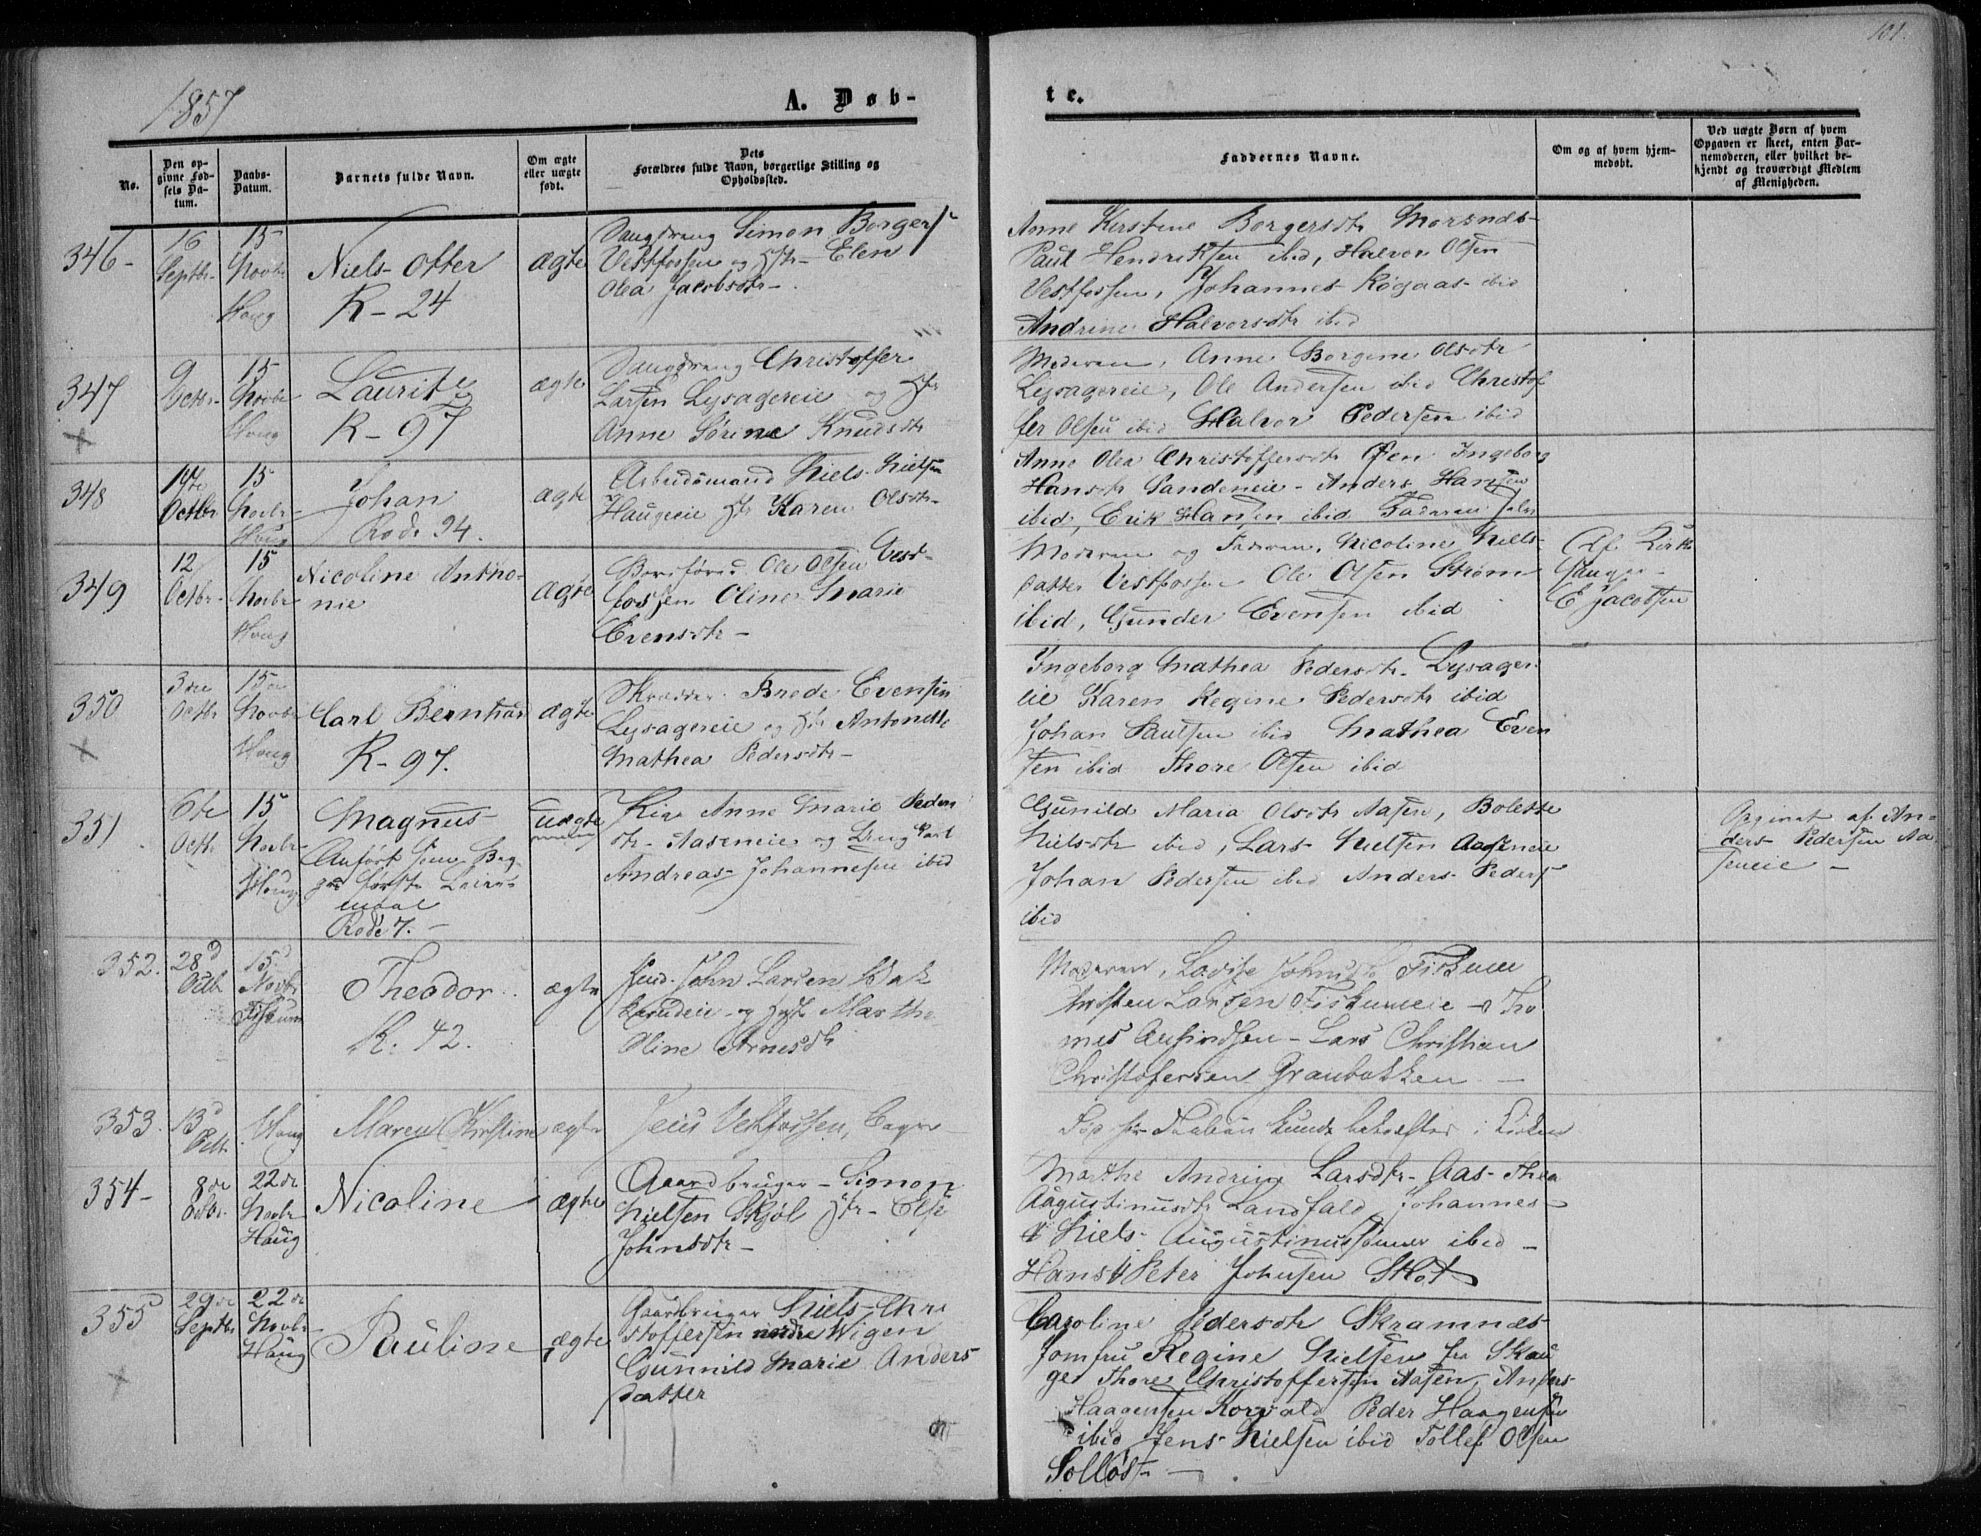 101.
1857
A. Døb-
te.
No.
Den opgivne Fødsels Datum.
Daabs-Datum.
Barnets fulde Navn.
Om ægte eller uægte født.
Dets Forældres fulde Navn, borgerlige Stilling og Opholdssted.
Faddernes Navne.
Om og af hvem hjemmedøbt.
Ved uægte Børn af hvem Opgaven er skeet, enten Barnemoderen, eller hvilket bekjendt og troværdigt Medlem af Menigheden.
346-
16 Septbr
15 Novbr Houg
Niels Otter
R-24
ægte
Simon Borgers
Vestfossen og Elen
Olea Jacobsdtr-
Anne Kirstine Borgersdtr
Paul Hendriksen ibid, Halvor Olsen
Vestfossen, Johannes ibid
Andrine Halvorsdtr ibid
347
9 Octbr
15 Novbr Houg
Lauritz
R-97
ægte
Christoffer
Larsen Lysagereie og
Anne Sørine Knudsdtr
Moderen, Anne Borgine Olsdtr
Lysagereie, Ole Andersen ibid Christof
fer Olsen ibid Halvor Pedersen ibid
348
14de Octbr
15 Novbr Houg
Johan
Rode 94.
ægte
Arbeidsmand Niels Nielsen
Haugeie Karen Olsdtr-
Anne Olea Christoffersdtr Ingeborg
Hansdtr Sandeneie - Anders Hansen
ibid, Erik Hansen ibid Faderen selv
349
12 Octbr
15 Novbr Houg
Nicoline Antho-
nie
ægte
Ole Olsen Vest-
fossen Oline Marie
Evensdtr-
Moderen og Faderen, Nicoline Niels
datter Vestfossen Ole Olsen Strøm
ibid, Gunder Evensen ibid
Af Kirke
sanger
E Jacobsen
350
3die Octbr
15de Novbr Houg
Carl Bernhar
R-97.
ægte
Skrædder Brede Evensen
Lysagereie og Antonette
Mathea Pedersdtr-
Ingeborg Mathea Pedersdtr- Lysager-
eie Karen Regine Pedersdtr ibid
Johan Paulsen ibid Mathea Even
sen ibid Thore Olsen ibid
351
6te Octbr
15 Novbr Houg
Magnus
Anført som Beg-
ges første Leier-
maal
Rode 7.-
uægte
Pige Anne Marie Peders
dtr- Aaseneie og Ungkarl
Andreas Johannesen ibid
Gunild Maria Olsdtr Aasen, Bolette
Nielsdtr ibid, Lars Nielsen Aaseneie
Johan Pedersen ibid Anders Peders
ibid
Opgivet af An-
ders Pedersen Aa-
seneie -
352.
28de Octb
15de Novbr Fiskum
Theodor
R. 42.
ægte
John Larsen Bak
og Marthe
Oline Arnesdtr
Moderen, Lovise Fiskum
Christen Larsen Fiskumeie -
Lars Christian
Christofersen Granbakken -
353.
13d Octb
Houg
Maren Kirstine
ægte
Jens Vestfossen, Bager
354-
8de Octbr
22de Novbr Haug
Nicoline
ægte
Gaardbruger - Simon
Nielsen Skjøl Else
Johnsdtr-
Marthe Andrine Larsdtr- Aas- Thea
Augustinusdtr Landfald Johannes-
& Niels Augustinussønner ibid -
Hans & Peter Johnsen
355
29de Septbr
22de Novbr Haug
Pauline
ægte
Gaardbruger Niels Chri
stoffersen nordre Wigen
Gunnild Marie Anders
datter
Caroline Pedersdtr Skramnæs
Jomfru Regine Nielsen fra Skau
ge Thore Christoffersen Aasen, Anders
Haagensen Korvald Peder Haagensen
ibid Jens Nielsen ibid Tollef Olsen